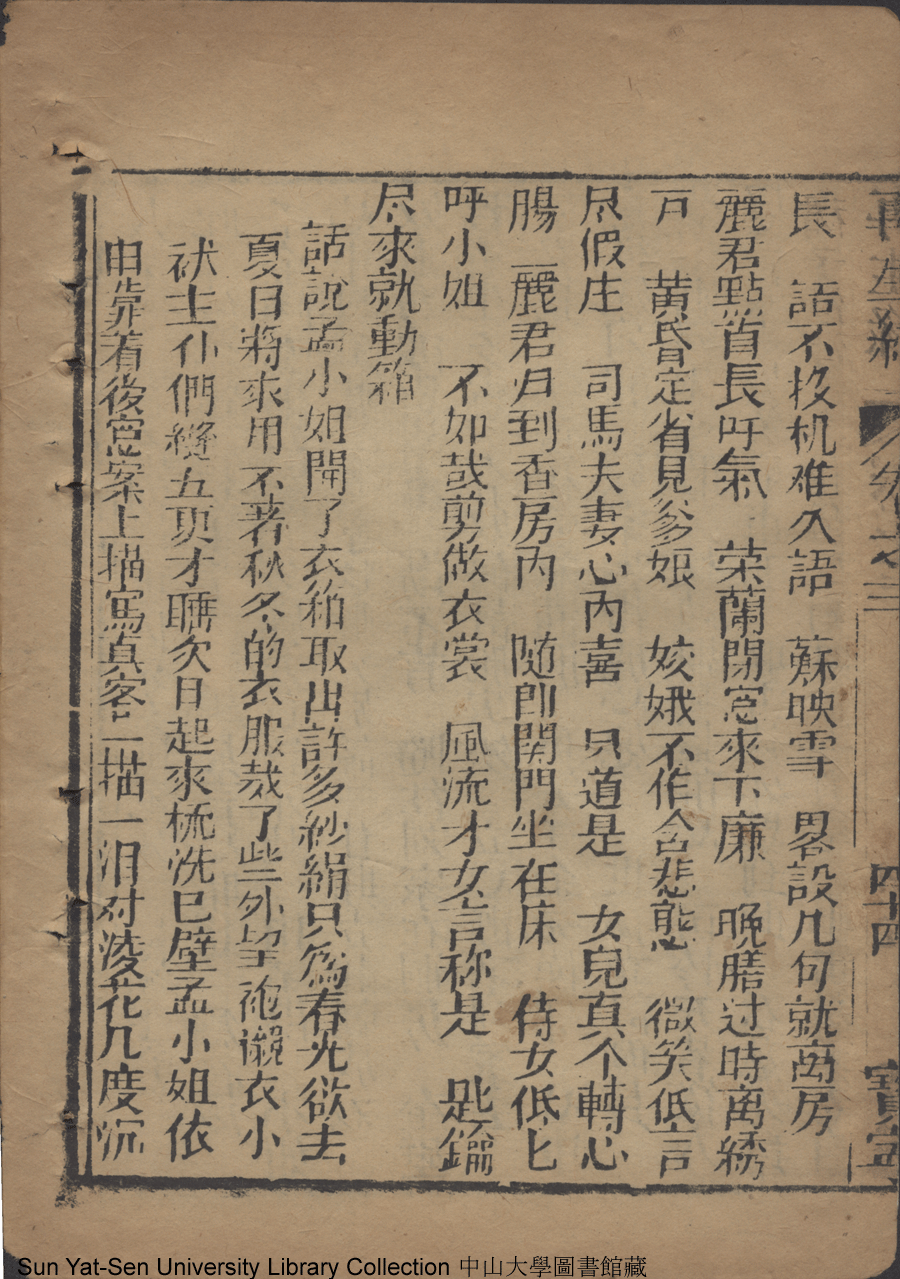 再生緣 卷之三 四十四 寶寧
長 語不投机难久語 蘇映雪 畧說几句就离房
麗君點首長吁氣 荣蘭閉窓來下廉 晚膳过時离綉
戶 黃昏定省見爹娘 姣娥不作含悲態 微笑低言
尽假庄 司馬夫妻心内喜 只道是 女兒真个轉心
腸 麗君归到香房内 随卽関門坐在床 侍女低匕
呼小姐 不如裁剪做衣裳 風流才女言称是 匙鑰
尽來就動箱
話說孟小姐開了衣箱取出許多紗絹只為春光欲去
夏日將來用不著秋冬的衣服裁了些外 袍襯衣小
袄主仆們縫五更才睡次日起來梳洗已壁孟小姐依
旧靠着後窓案上描寫真客二描一泪对凌花几度沉
Sun Yat-Sen University Library Collection 中山大學圖書館藏